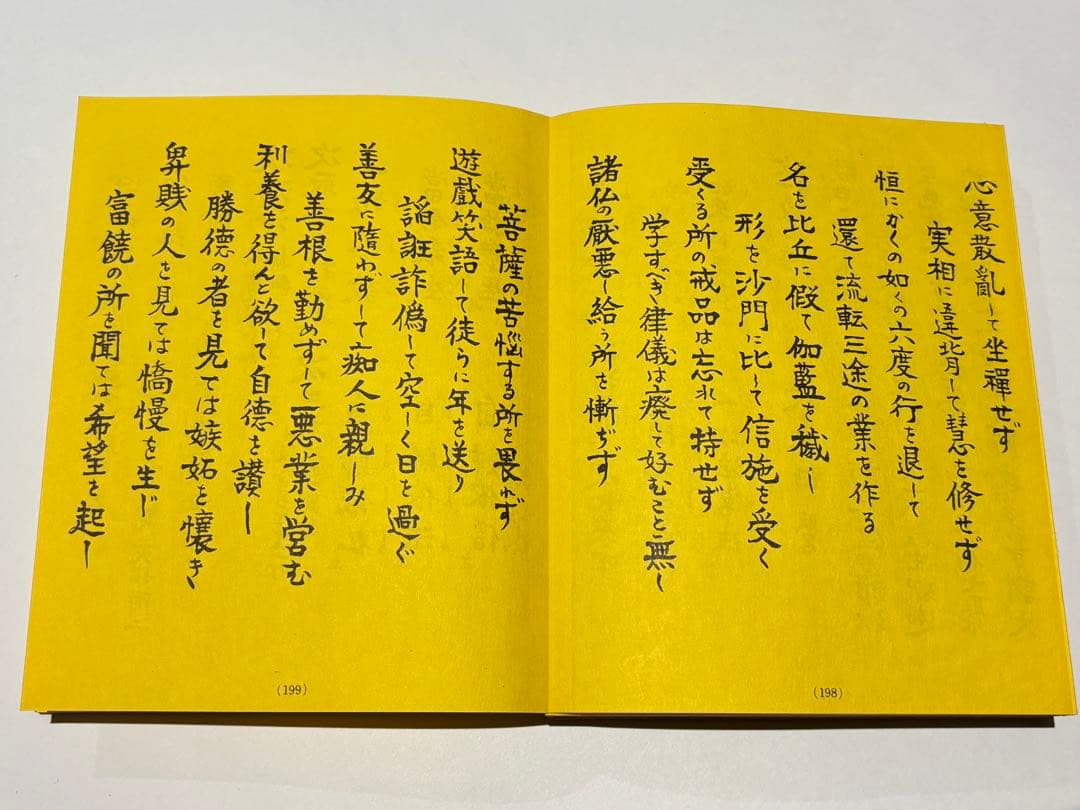 心意散亂して坐禪せず
実相に違背して慧を修せず
恒にかくの如くの六度の行を退して
還て流転三途の業を作る
名を比丘に假て伽藍を穢し
形を沙門に比して信施を受く
受くる所の戒品は忘れて持せず
学すべき律儀は廃して好むこと無し
諸仏の厭悪し給う所を慚ぢず
(198)
菩薩の苦悩する所を畏れず
遊戯笑語して徒らに年を送り
謟誑詐偽して空しく日を過ぐ
善友に隨わずして痴人に親しみ
善根を勤めずして悪業を営む
利養を得んと欲して自徳を讃し
勝徳の者を見ては嫉妬を懐き
卑賎の人を見ては憍慢を生じ
富饒の所を聞ては希望を起し
(199)